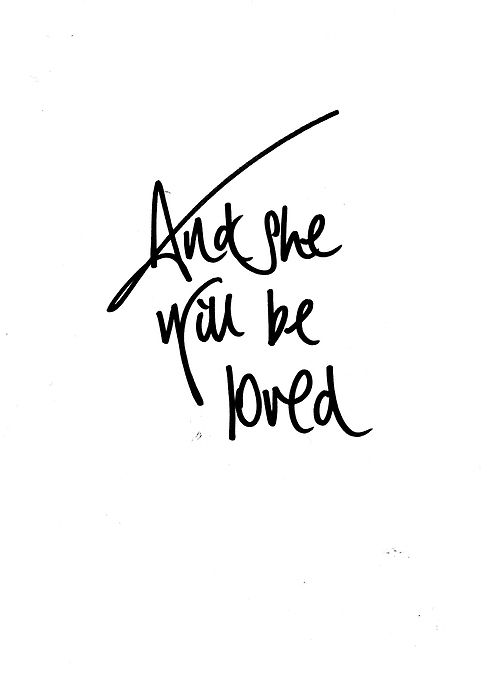 And she
will be
loved